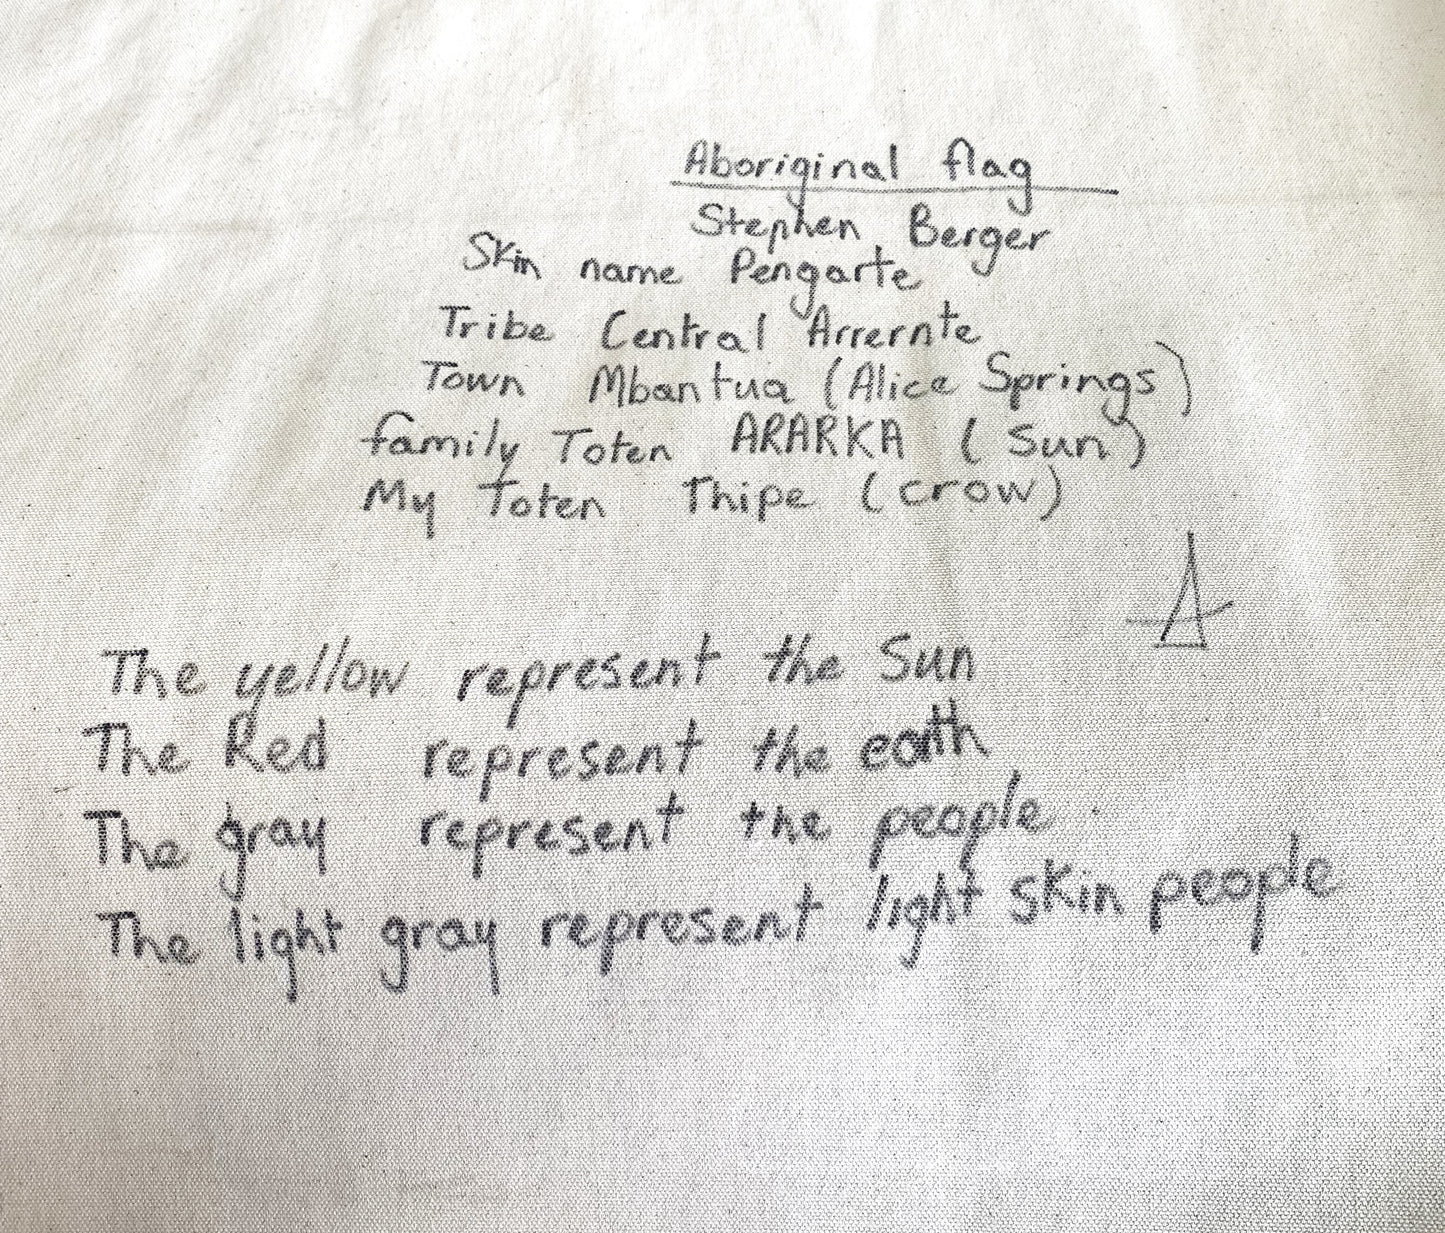 Aboriginal flag
Stephen Berger
Skin name Pengarte
Tribe Central Arrernte
Town Mbantua (Alice Springs)
family Toten ARARKA (Sun)
My Toten Thipe (crow)
The yellow represent the Sun
The Red represent the earth
The gray represent the people
The light gray represent light skin people